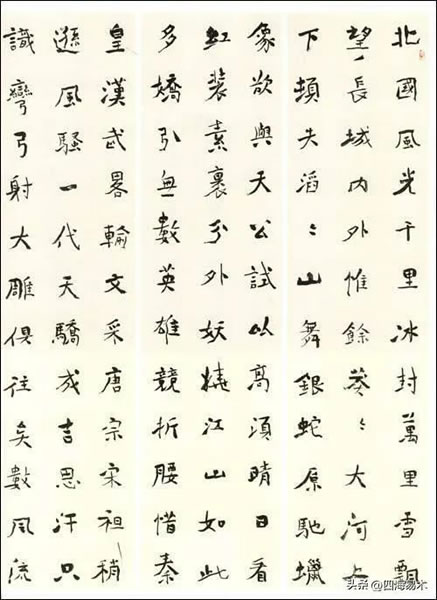 北國風光千里冰封萬里雪飄
望長城内外惟餘莽〻大河上
下頓失滔〻山舞銀蛇原馳蠟
象欲與天公試比高須晴日看
紅裝素裹分外妖嬈江山如此
多嬌引無數英雄競折腰惜秦
皇漢武畧輸文采唐宗宋祖稍
遜風騷一代天驕成吉思汗只
識彎弓射大雕俱往矣數風流
头条 @四海易木